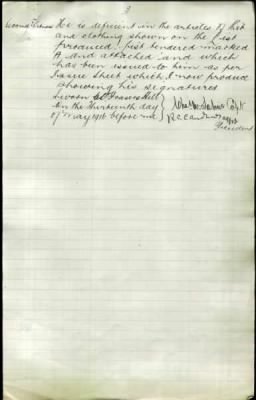 3
Second Witness He is deficient in the articles of Kit
and clothing shown on the list
produced. List tendered marked
A and attached and which
has been issued to him as per
Issue Sheet which I now produce
showing his signatures
Sworn at Frasers Hill
On the Thirteenth day
Of May 1916 before me
Capt
President